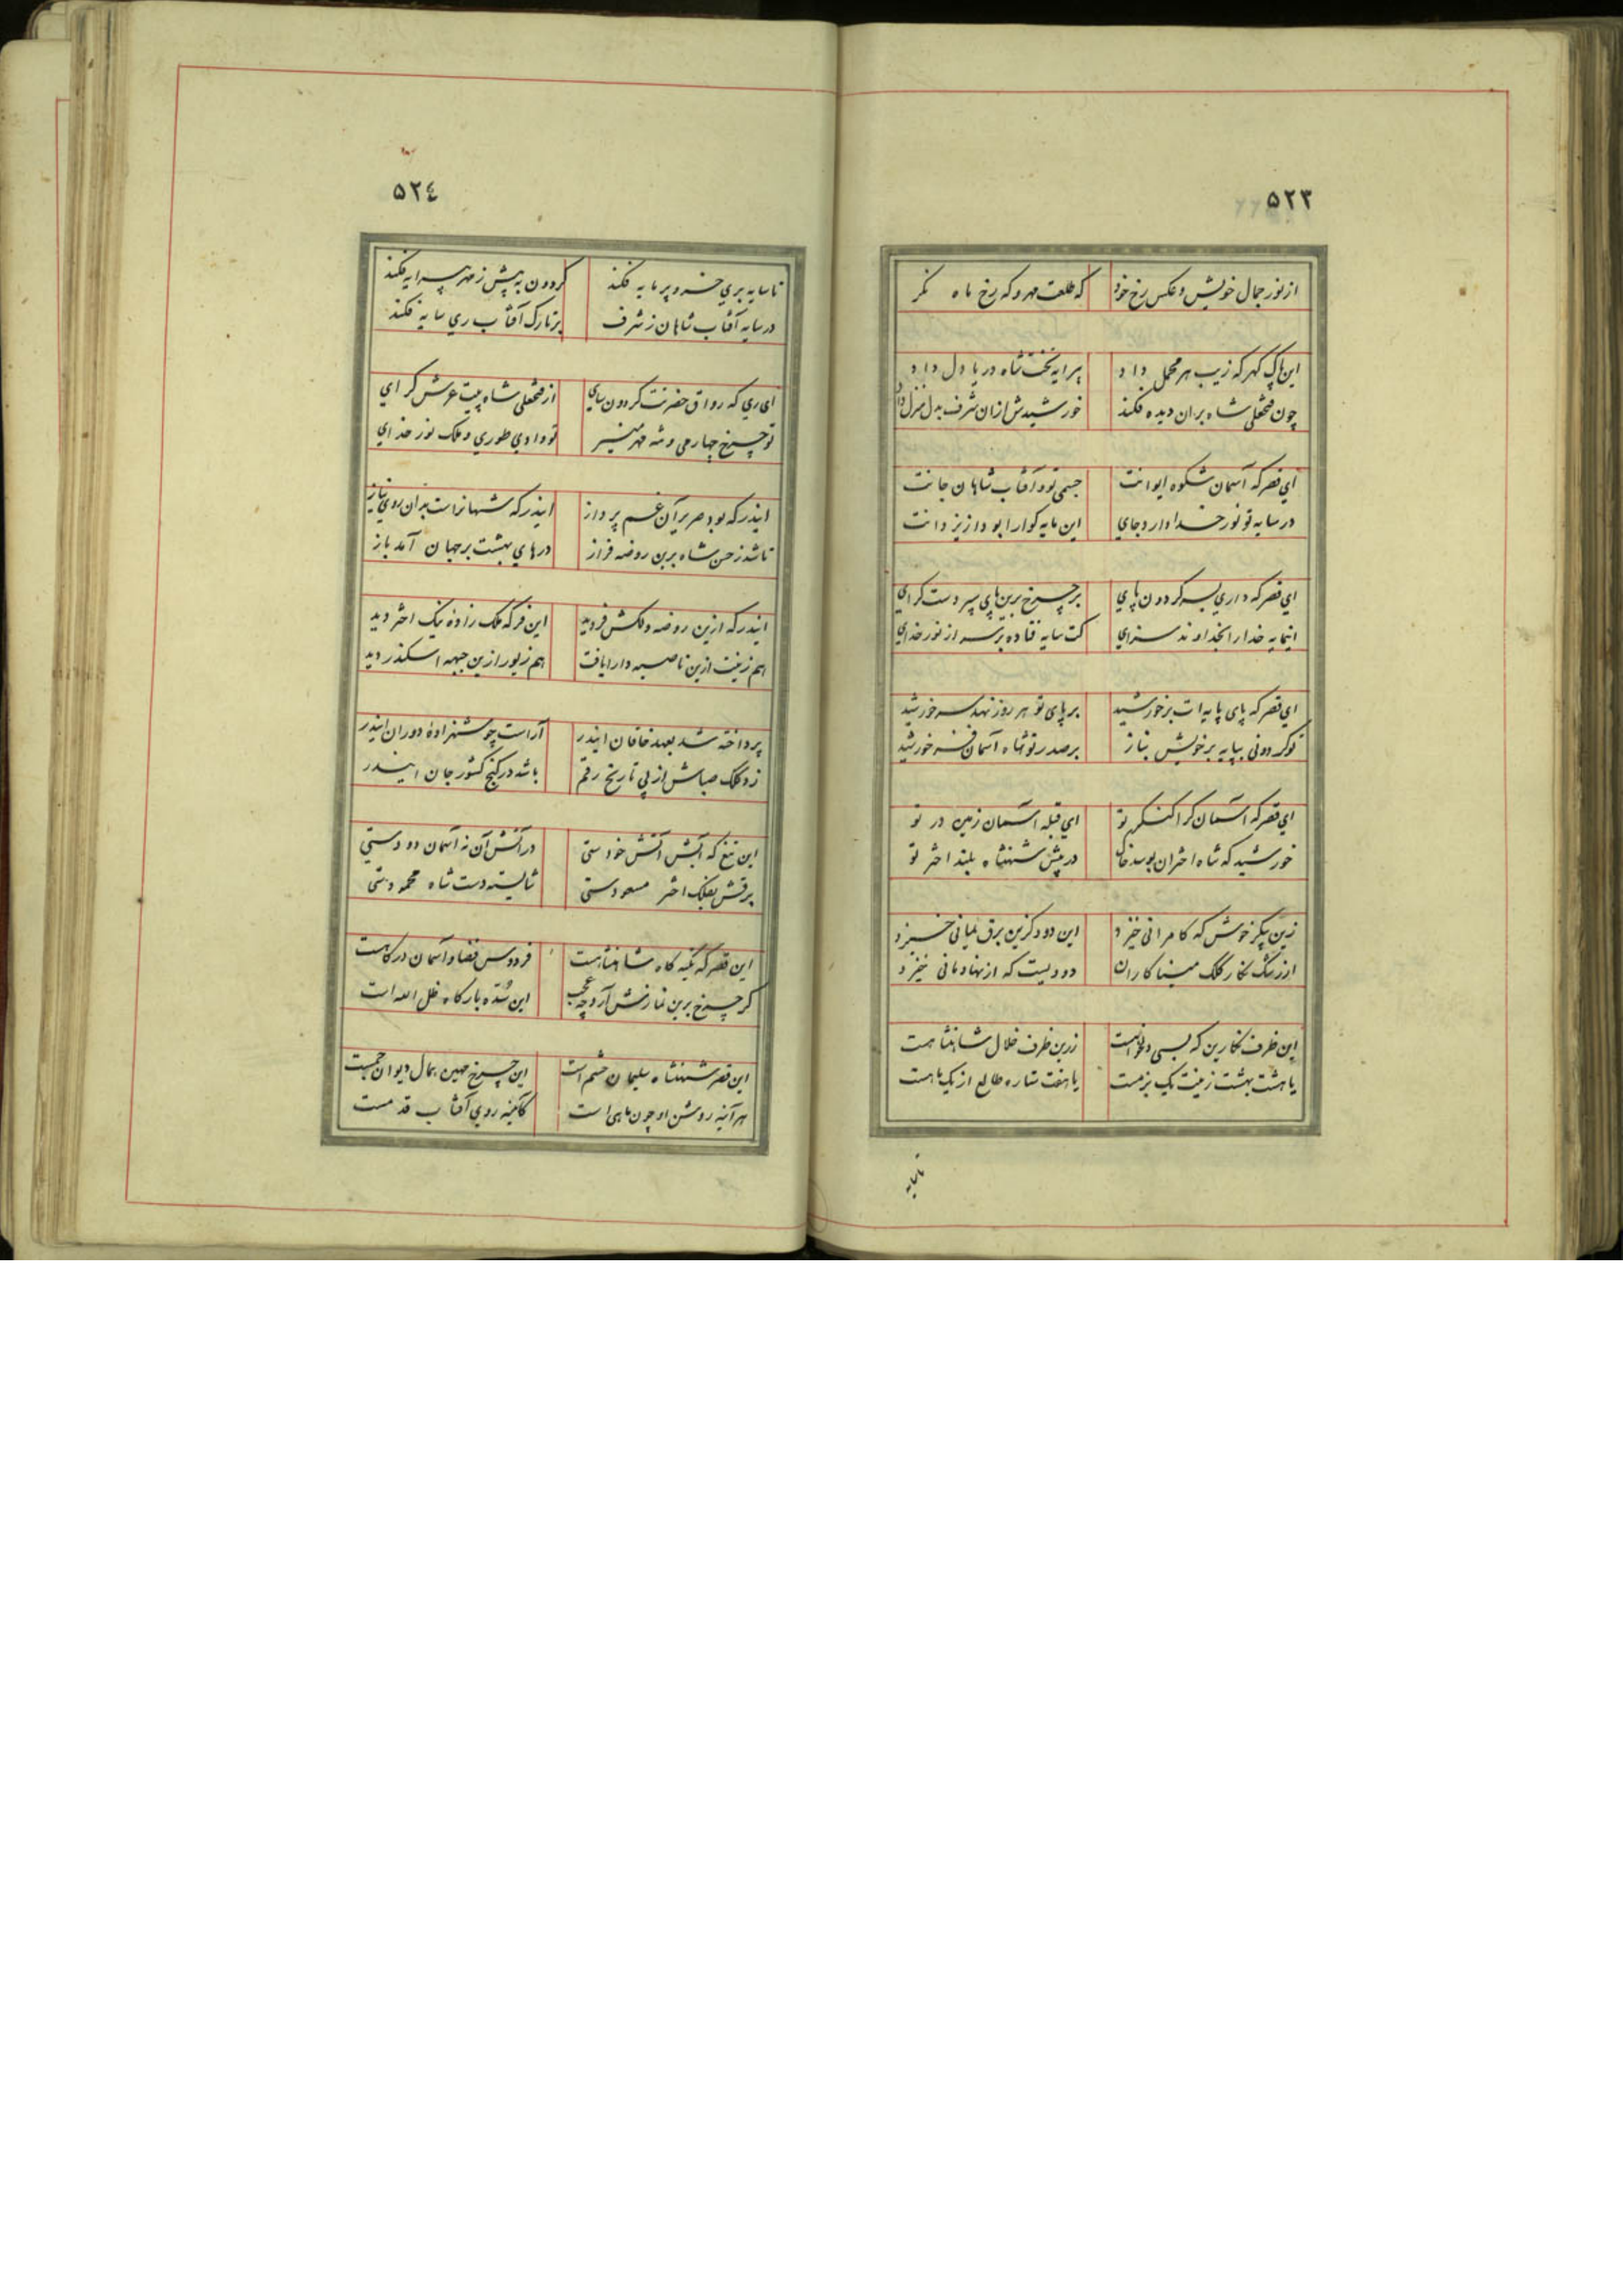 ٥٢٣
از نور جمال خویش و عکس رخ خود که طلعت مهر و که رخ ماه نکر
این پاک کهر که زیب هر محمل داد پیرایه بتخت شاه دریا دل داد
چون فتحعلی شاه بران دیده فکند خورشیدش ازان شرف بدل منزل داد
ای قصر که آسمان شکوه ایوانت جسمی تو و آفتاب شاهان جانت
در سایه تو نور خدا دارد جای این مایه کوارا بود از یزدانت
ای قصر که داری بسر کردون پای بر چرخ برین پای سپر دست کرای
اینمایه خدا را بخداوند سزای کت سایه فتاده بر سر از نور خدای
ای قصر که پای پایه‌ات بر خورشید بر پای تو هر روز نهد سر خورشید
تو کردونی بپایه بر خویش بناز بر صدر تو شاه آسمان فر خورشید
ای قصر که آسمان کرا کنکر تو ای قبله آسمان زمین در تو
خورشید که شاه اختران بوسد خاک در پیش شهنشاه بلند اختر تو
زین پیکر خوش که کامرانی خیزد این دود کزین برق یمانی خیزد
ارژنک نکار کلک مینا کاران دودیست که از نهاد مانی خیزد
این ظرف نکارین که بسی دلخواهست زرین ظرف خلال شاهنشاهست
یا هشت بهشت زینت یک بزمست یا هفت ستاره طالع از یک ماهست
تا سایه
٥٢٤
تا سایه بری خسرو پر مایه فکند کردون به پیش ز مهر پیرایه فکند
در سایه آفتاب شاهان ز شرف بر تارک آفتاب ری سایه فکند
ای ری که رواق حضرتت کردون سای از فتحعلی شاه پیت عرش کرای
تو چرخ چهارمی و شه مهر منیر تو وادی طوری و ملک نور خدای
ایندر که بود صریر آن غم پرداز ایندر که شهانراست بدان روی نیاز
تا شد ز حسن شاه برین روضه فراز درهای بهشت بر جهان آمد باز
ایندر که ازین روضه دلکش فر دید این فر که ملک زاده نیک اختر دید
هم زینت ازین ناصیه دارا یافت هم زیور ازین جبهه اسکندر دید
پرداخته شد بعهد خاقان ایندر آراست چو شهزاده دوران ایندر
زد کلک صباش از پی تاریخ رقم باشد در کنج کشور جان ایندر
این تیغ که آبش آتش خود ستی در آتش آن نه آسمان دودستی
برقش بفلک اختر مسعودستی شایسته دست شاه محمودستی
این قصر که تکیه کاه شاهنشاهست فردوس فضا و آسمان درکاهست
کر چرخ برین نماز نش آرد چه عجب این سده بارکاه ظل الله است
این قصر شهنشاه سلیمان حشم است این چرخ مهین بمال دیوان جمست
هر آینه روشن او چون ماهی است کآینه روی آفتاب قدمست